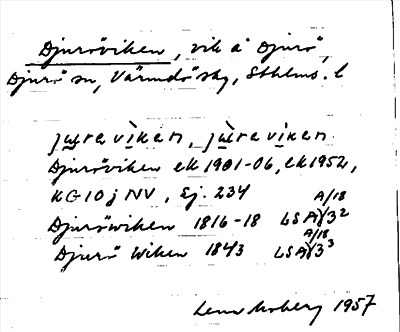 Djuröviken, vik å Djurö,
Djurö sn, Värmdö skg, Sthlms. l
jureviken, jùreviken.
Djuröviken ek 1901-06, ek 1952,
KG 10 j NV, Ej. 234
Djuröwiken 1816-18 LSA A/18 3²
Djurö Wiken 1843 LSA A/18 3³
Lena Moberg 1957